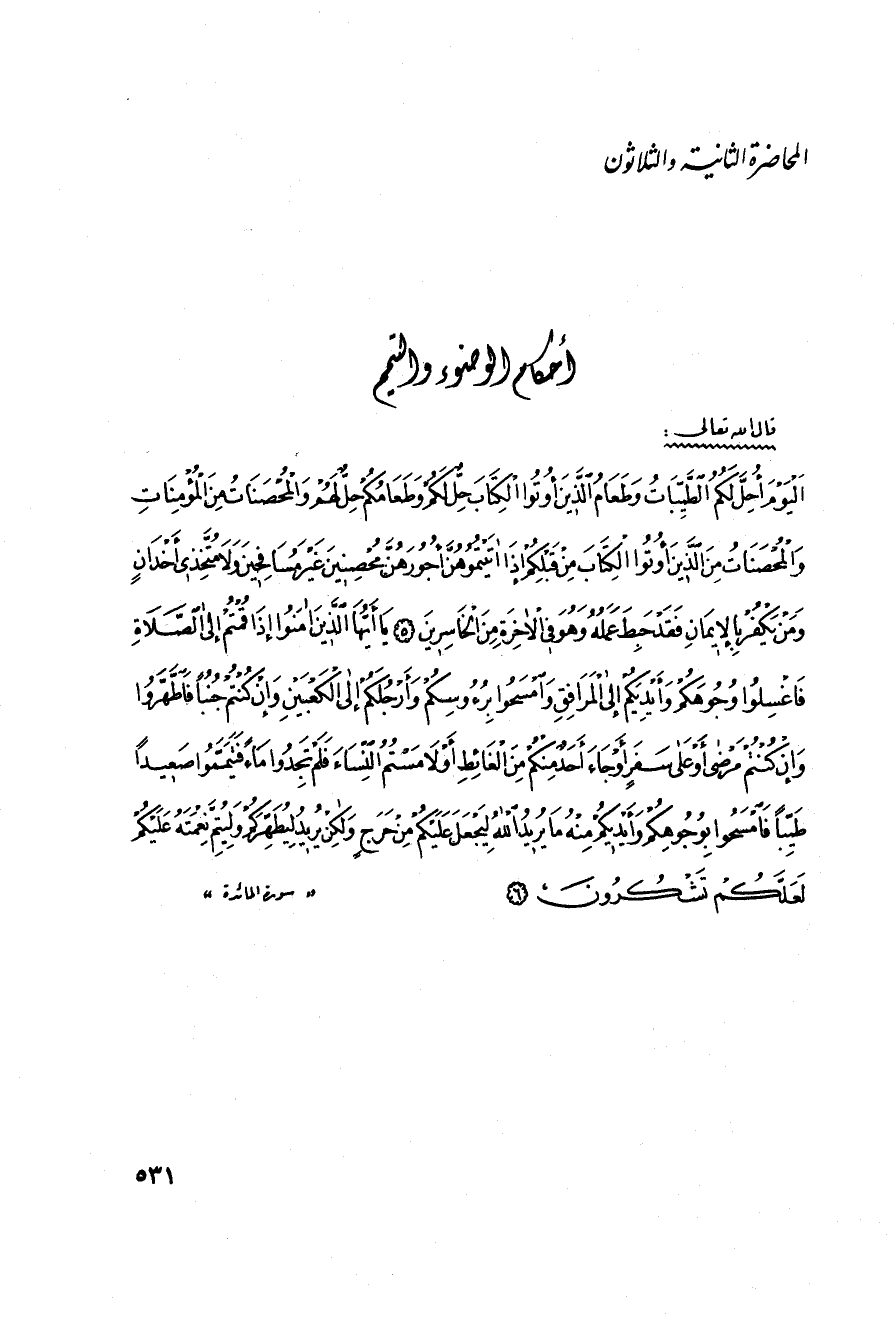 المحاضرة الثانية والثلاثون
أحكام الوضوء والتيمم
قال الله تعالى :
اَلْيَوْمَ أُحِلَّ لَكُمُ الطَّيِّبَاتُ وَطَعَامُ الَّذِينَ أُوتُوا الْكِتَابَ حِلٌّ لَكُمْ وَطَعَامُكُمْ حِلٌّ لَهُمْ وَالْمُحْصَنَاتُ مِنَ الْمُؤْمِنَاتِ
وَالْمُحْصَنَاتُ مِنَ الَّذِينَ أُوتُوا الْكِتَابَ مِنْ قَبْلِكُمْ إِذَا اٰتَيْتُمُوهُنَّ أُجُورَهُنَّ مُحْصِنِينَ غَيْرَ مُسَافِحِينَ وَلَا مُتَّخِذِي أَخْدَانٍ
وَمَنْ يَكْفُرْ بِالْإِيمَانِ فَقَدْ حَبِطَ عَمَلُهُ وَهُوَ فِي الْاٰخِرَةِ مِنَ الْخَاسِرِينَ ﴿٥﴾ يَا أَيُّهَا الَّذِينَ اٰمَنُوا إِذَا قُمْتُمْ إِلَى الصَّلَاةِ
فَاغْسِلُوا وُجُوهَكُمْ وَأَيْدِيَكُمْ إِلَى الْمَرَافِقِ وَامْسَحُوا بِرُءُوسِكُمْ وَأَرْجُلَكُمْ إِلَى الْكَعْبَيْنِ وَإِنْ كُنْتُمْ جُنُباً فَاطَّهَّرُوا
وَإِنْ كُنْتُمْ مَرْضٰى أَوْ عَلٰى سَفَرٍ أَوْ جَاءَ أَحَدٌ مِنْكُمْ مِنَ الْغَائِطِ أَوْ لَامَسْتُمُ النِّسَاءَ فَلَمْ تَجِدُوا مَاءً فَتَيَمَّمُوا صَعِيداً
طَيِّباً فَامْسَحُوا بِوُجُوهِكُمْ وَأَيْدِيكُمْ مِنْهُ مَا يُرِيدُ اللّٰهُ لِيَجْعَلَ عَلَيْكُمْ مِنْ حَرَجٍ وَلٰكِنْ يُرِيدُ لِيُطَهِّرَكُمْ وَلِيُتِمَّ نِعْمَتَهُ عَلَيْكُمْ
لَعَلَّكُمْ تَشْكُرُونَ ﴿٦﴾ « سورة المائدة »
٥٣١